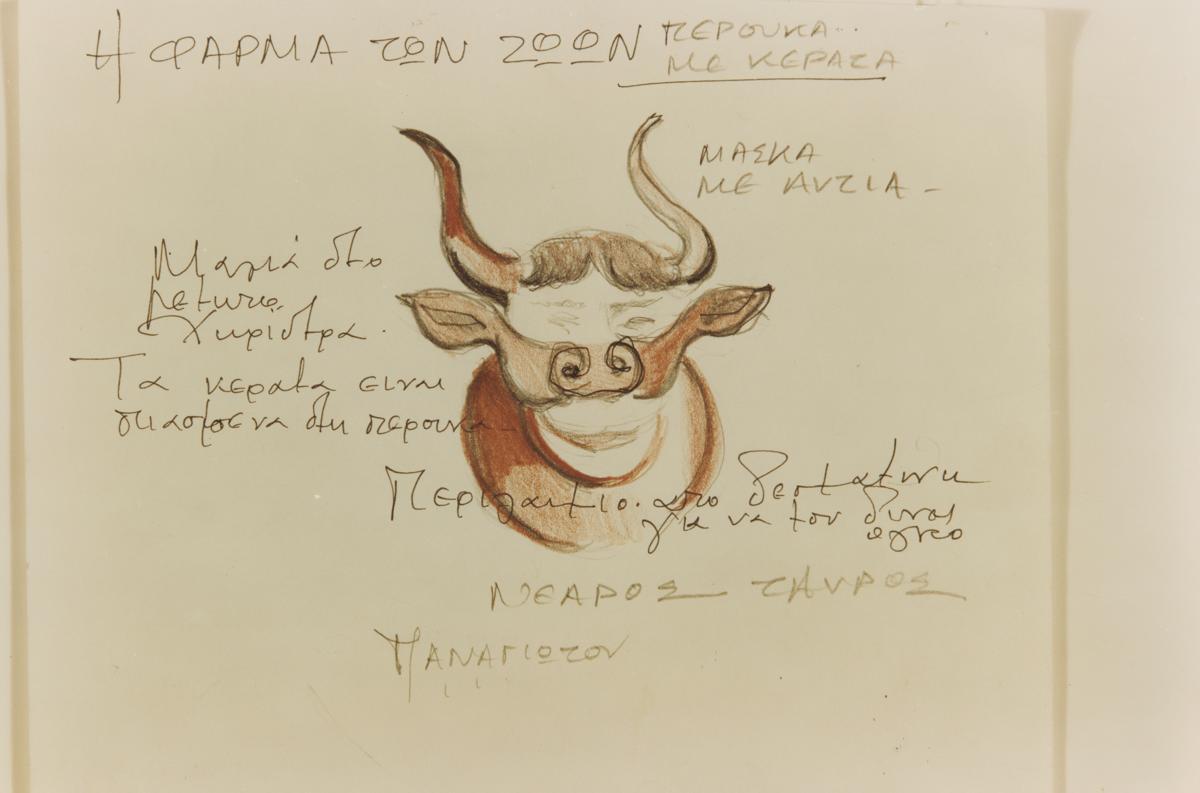 Η ΦΑΡΜΑ ΤΩΝ ΖΩΩΝ
ΠΕΡΟΥΚΑ..
ΜΕ ΚΕΡΑΤΑ
ΜΑΣΚΑ
ΜΕ ΑΥΤΙΑ -
Μαλιά στο
μετωπο
χωρίστρα.
Τα κερατα ειναι
πιασμενα στη περουκα -
Περιλαιμιο. απο
για να του δινει
ογκο
ΝΕΑΡΟΣ ΤΑΥΡΟΣ
ΠΑΝΑΓΙΩΤΟΥ